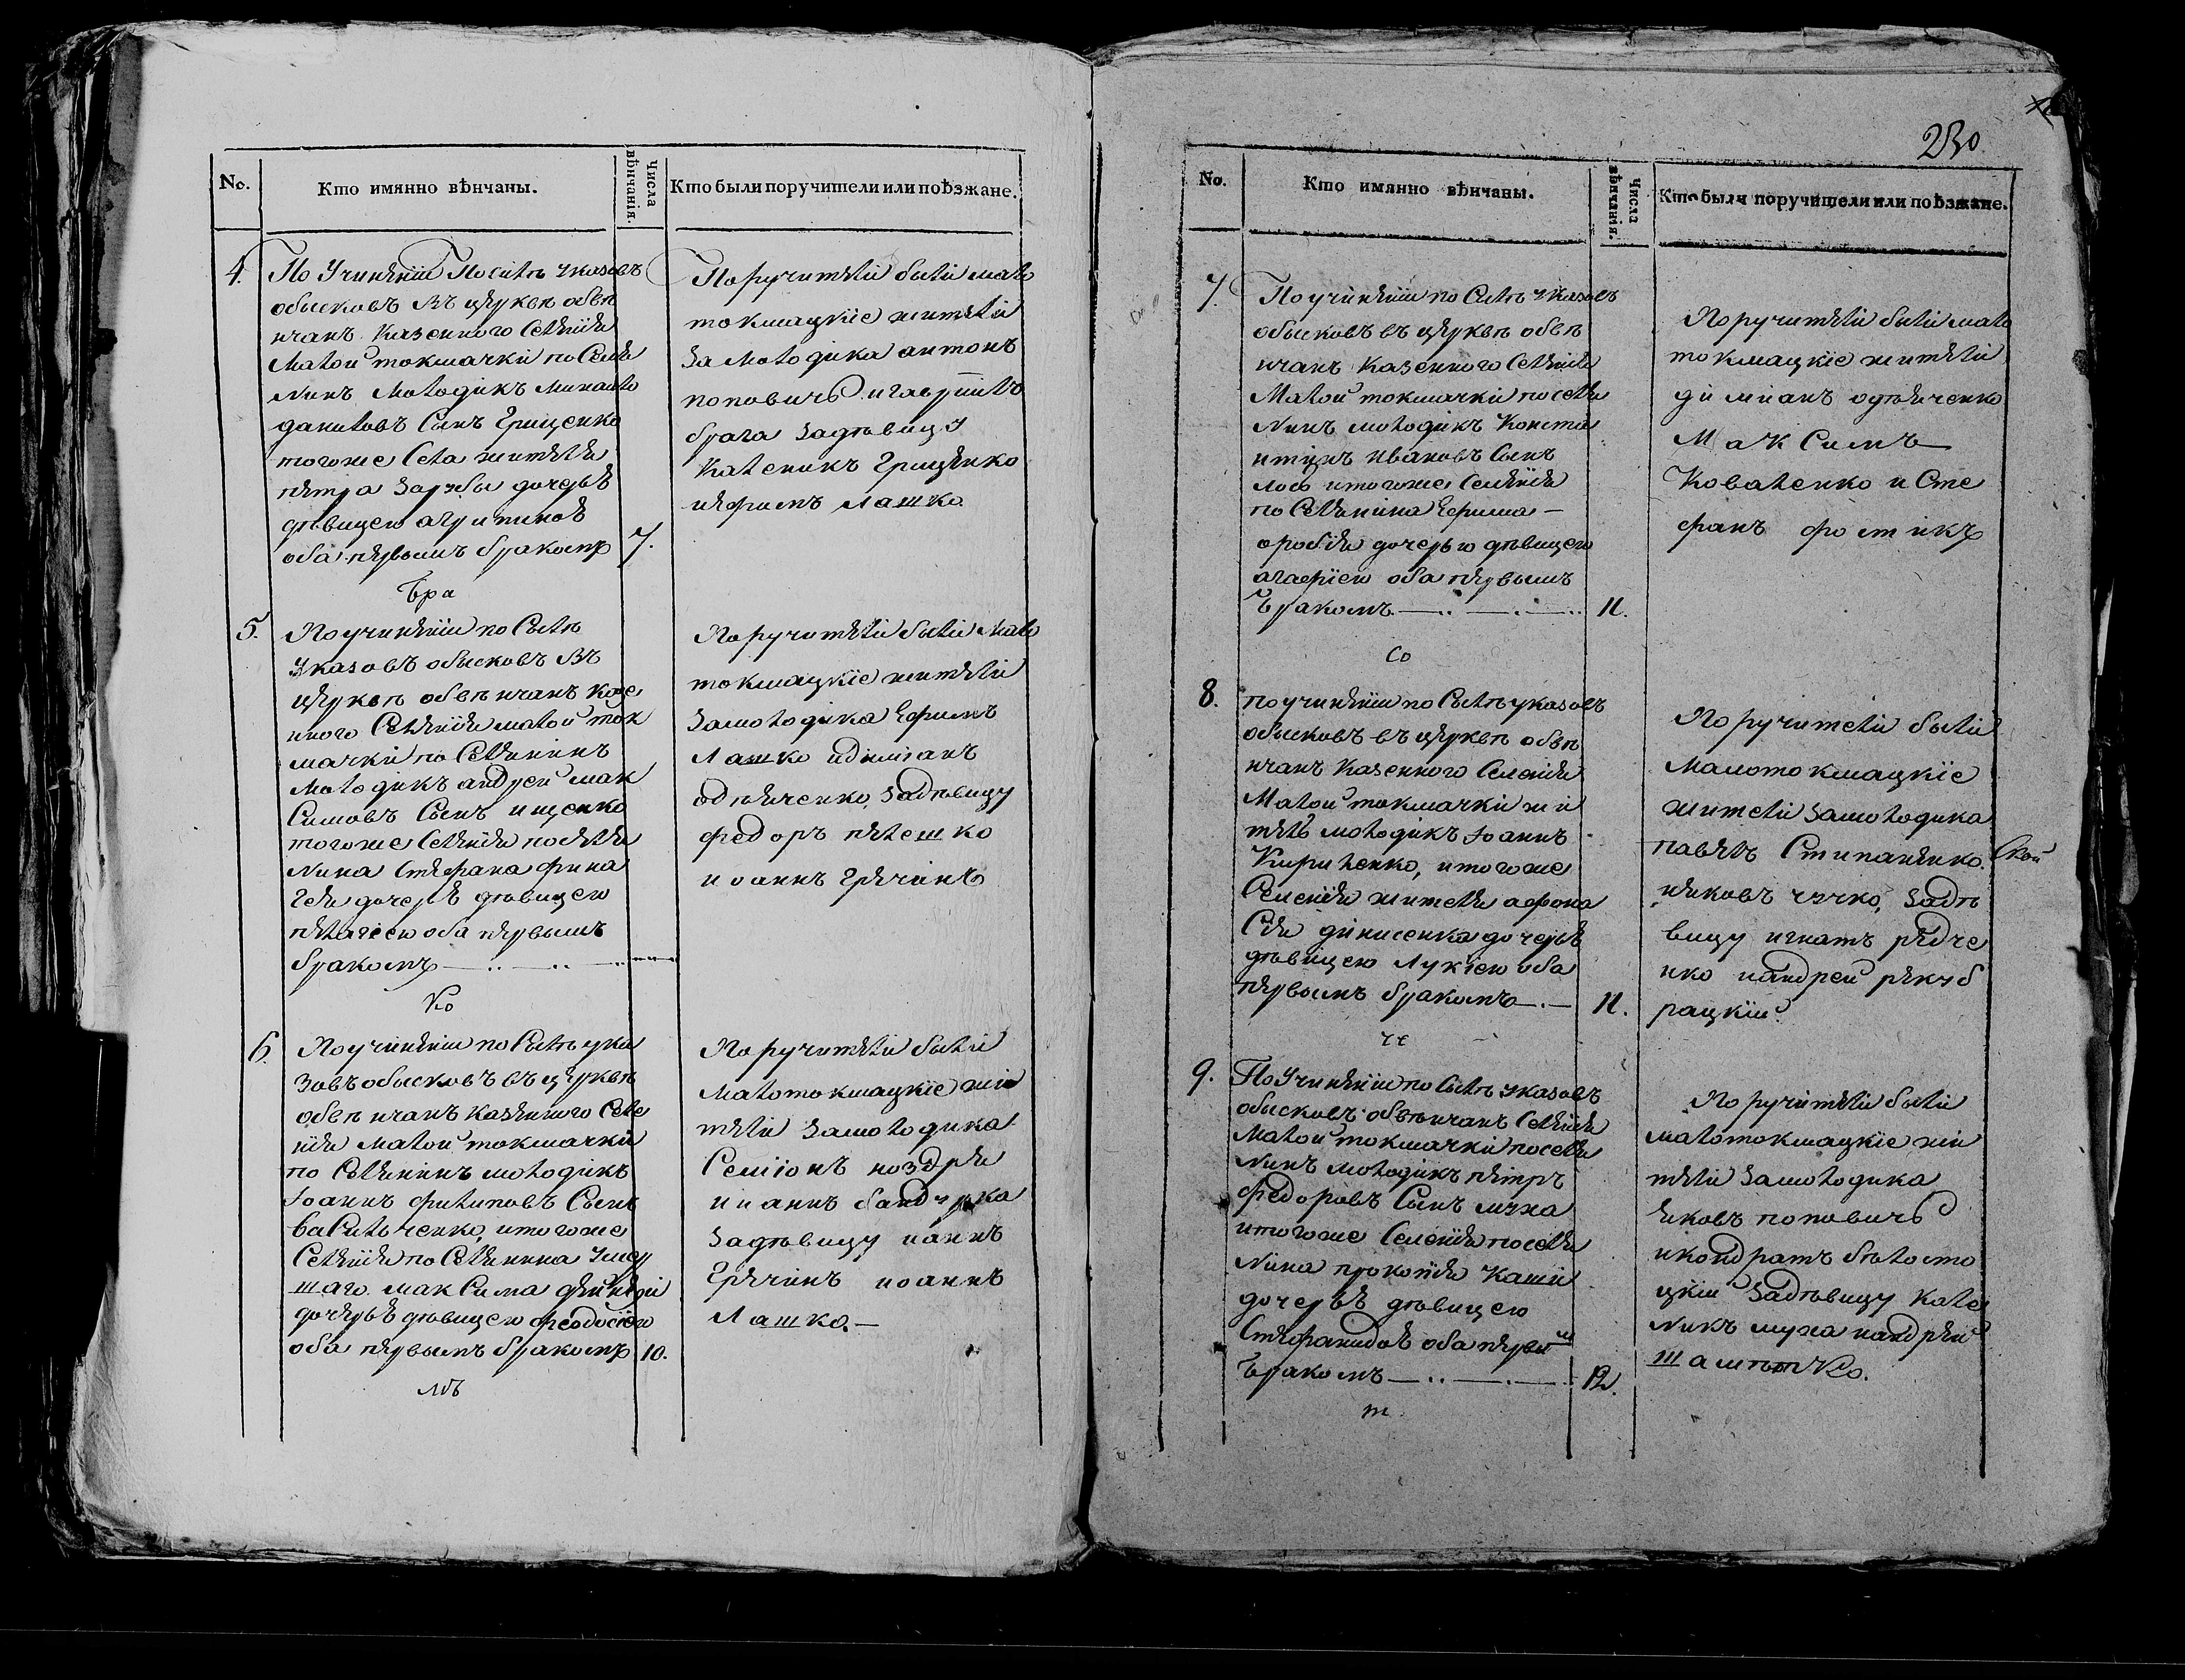 No.
Кто имянно вѣнчаны.
Числа вѣнчанія.
Кто были поручители или поѣзжане.
4.
По Учинѣніи По силѣ указовъ
обысковъ Въ церквѣ обвѣ
нчанъ Казенного Селенія
Малой токмачки по Селя
нинъ Молодикъ Михайло
даниловъ Сынъ Грищенко
тогоже Села жителя
петра Зарубы дочерью
дѣвицею агрипиною
оба первымъ бракомъ
7.
Бра
Поручители были мало
токмацкіе жители
За молодика антонъ
поповичь и гавріилъ
брага За дѣвицу
Каленикъ Грищенко
иефимъ Лашко
5.
По учинѣніи по Силѣ
Указовъ обысковъ Въ
церквѣ обвѣнчанъ казе
нного Селенія малой ток
мачки по Селянинъ
Молодикъ андрей мак
Симовъ Сынъ ищенко
тогоже Селенія поселя
нина Стефана фина
гея дочерю дѣвицею
пелагіею оба первымъ
бракомъ
Ко
Поручители были Мало
токмацкіе жители
За молодика Ефимъ
Лашко идиміанъ
одѣяченко, За дѣвицу
федоръ пелешко
иоаннъ Гречинъ
6.
По учинѣніи по Силѣ ука
Зовъ обысковъ въ церквѣ
обвѣнчанъ казенного Селе
нія малой токмачки
по Селянинъ молодикъ
Іоаннъ филиповъ Сынъ
василиченко, итогоже
Селенія по Селянина Умер
шаго макСима
дочерью дѣвицею феодосіею
оба первымъ бракомъ
10.
мъ
Поручители были
малотокмацкіе жи
тели За молодика
Семіонъ ноздря
иианнъ бандурка
За дѣвицу иоаннъ
Гречинъ иоаннъ
Лашко.
230
No.
Кто имянно вѣнчаны.
Числа вѣнчанія.
Кто были поручители или поѣзжане.
7.
По учинѣніи по Силѣ указовъ
обысковъ въ церквѣ обвѣ
нчанъ Казенного Селенія
Малой токмачки поселя
нинъ молодикъ Конста
нтинъ ивановъ Сынъ
итогоже Селенія
по Селянина Ефима
оробія дочерью дѣвицею
агафіею оба первымъ
бракомъ
11.
Со
Поручители были мало
токмацкіе жители
диміанъ одѣяченко
МакСимъ
Коваленко и Сте
фанъ фостикъ
8.
по учинѣніи по Силѣ указовъ
обысковъ въ церквѣ обвѣ
нчанъ Казенного Селенія
Малой токмачки жи
тель молодикъ Іоаннъ
Кириленко, итогоже
Селенія жителя афона
Сія динисенка дочерью
дѣвицею Лукіею оба
первымъ бракомъ
11.
че
Поручители были
Малотокмацкіе
жители За молодика
павелъ Стипаненко.
иековъ чучко, За дѣ
вицу игнатъ редче
нко иандрей рекуб
рацкій
9.
По Учинѣніи по Силѣ указовъ
обысковъ обвѣнчанъ Селенія
Малой токмачки поселя
нинъ молодикъ петръ
федоровъ Сынъ муха
итогоже Селенія поселя
нина прокопія Каши
дочерью дѣвицею
Стефанидою оба первым
бракомъ
12.
т
Поручители были
малотокмацкіе жи
тели За молодика
яковъ поповичь
икондратъ бѣлосто
цкій За дѣвицу Кале
никъ муха иандрей